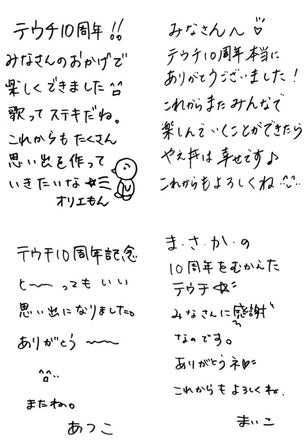 テウチ10周年!!
みなさんのおかげで
楽しくできました
歌ってステキだね。
これからもたくさん
思い出を作って
いきたいな
オリエもん
みなさんへ♡
テウチ10周年本当に
ありがとうございました!
これからまたみんなで
楽しんでいくことができたら
は幸せです♪
これからもよろしくね
テウチ10周年記念
と〜ってもいい
思い出になりました。
ありがとう〜〜
またね。
あつこ
ま・さ・か・の
10周年をむかえた
テウチ
みなさんに感謝
なのです。
ありがとうネ
これからもよろしくね。
まいこ